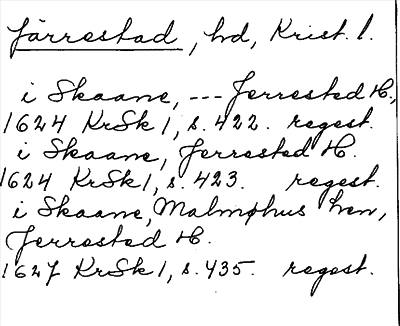 Järrestad, hd, Krist. l.
i Skaane, --- Jerrested H.,
1624 KrSk 1, s. 422. regest.
i Skaane, Jerrested H.
1624 KrSk 1, s. 423. regest.
i Skaane, Malmøhus len,
Jerrested H.
1627 KrSk 1, s. 435. regest.